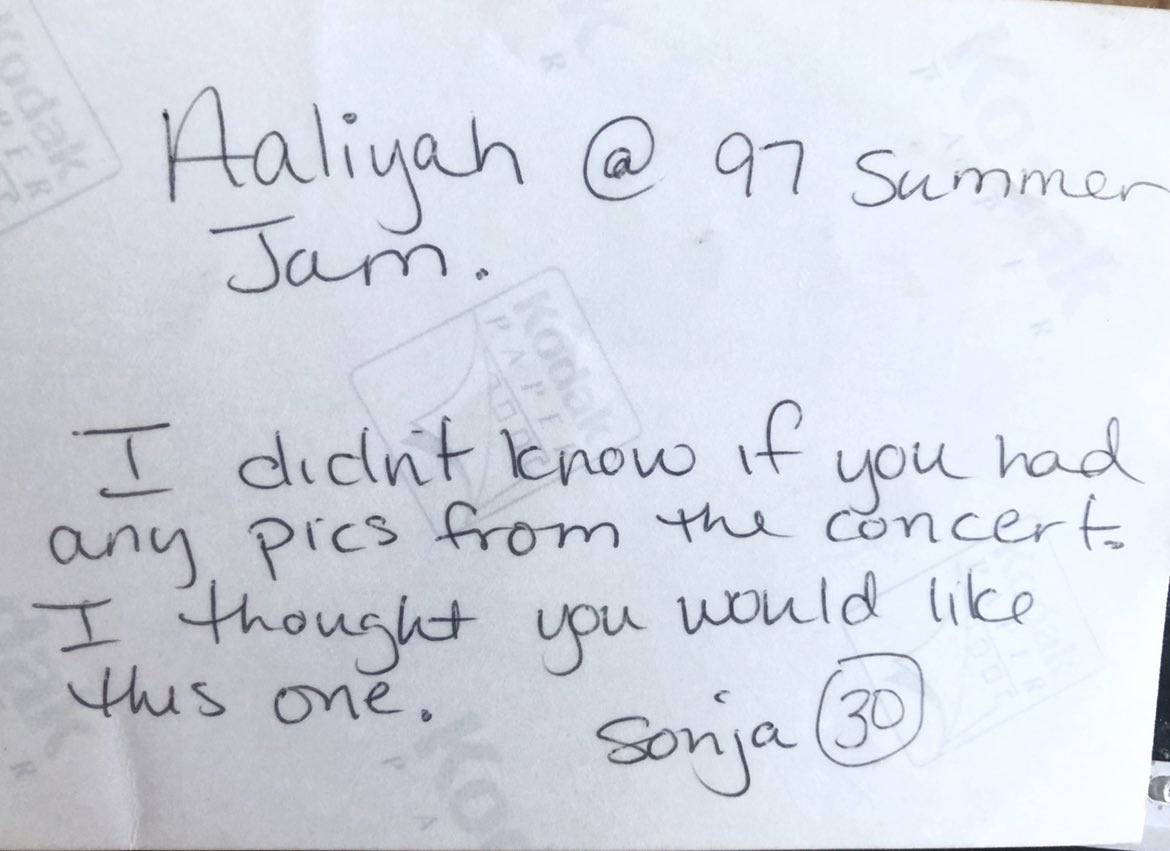 Aaliyah @ 97 Summer
Jam.
I didn't know if you had
any pics from the concert.
I thought you would like
this one.
Sonja 30
Kodak
PAPER
Kodak
PAPER
Kodak
Kodak